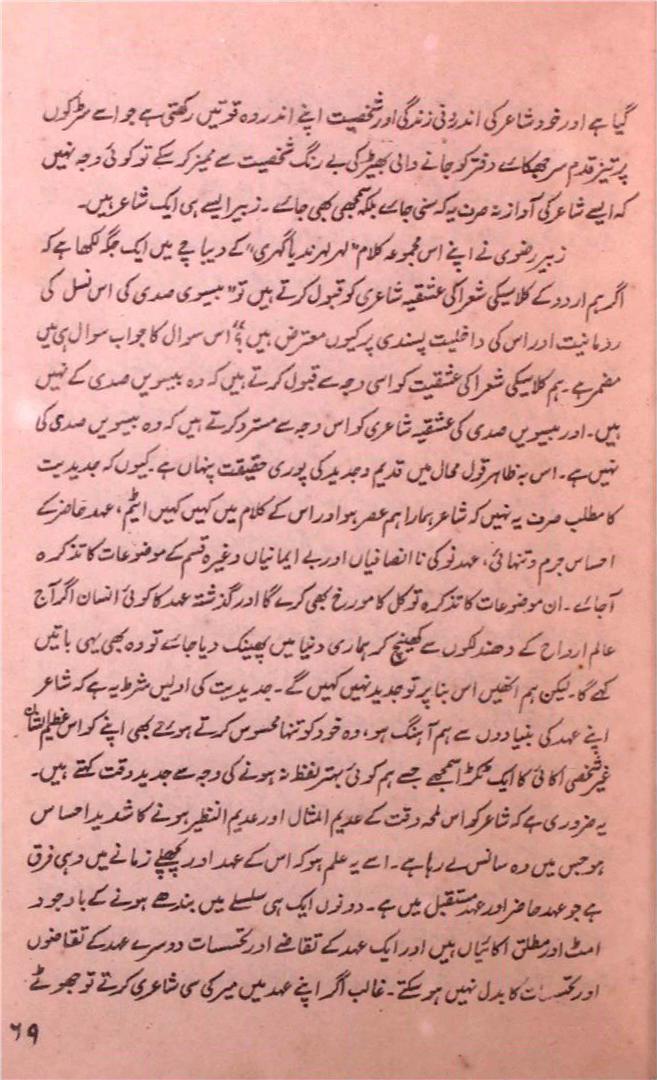 گیا ہے اور خود شاعر کی اندرونی زندگی اور شخصیت اپنے اندر وہ قوتیں رکھتی ہے جو اسے سڑکوں
پر تیز قدم سر جھکائے دفتر کو جانے والی بھیڑ کی بے رنگ شخصیت سے ممیز کر سکے تو کوئی وجہ نہیں
کہ ایسے شاعر کی آواز نہ صرف یہ کہ سنی جائے بلکہ سمجھی بھی جائے۔ زبیر ایسے ہی ایک شاعر ہیں۔
زبیر رضوی نے اپنے اس مجموعہ کلام "لہر لہر ندیا گہری" کے دیباچے میں ایک جگہ لکھا ہے کہ
اگر ہم اردو کے کلاسیکی شعرا کی عشقیہ شاعری کو قبول کرتے ہیں تو "بیسوی صدی کی اس نسل کی
رومانیت اور اس کی داخلیت پسندی پر کیوں معترض ہیں؟" اس سوال کا جواب سوال ہی میں
مضمر ہے۔ ہم کلاسیکی شعرا کی عشقیت کو اسی وجہ سے قبول کرتے ہیں کہ وہ بیسویں صدی کے نہیں
ہیں۔ اور بیسویں صدی کی عشقیہ شاعری کو اس وجہ سے مسترد کرتے ہیں کہ وہ بیسویں صدی کی
نہیں ہے۔ اس بہ ظاہر قول محال میں قدیم و جدید کی پوری حقیقت پنہاں ہے۔ کیوں کہ جدیدیت
کا مطلب صرف یہ نہیں کہ شاعر ہمارا ہم عصر ہو اور اس کے کلام میں کہیں کہیں ایٹم، عہد حاضر کے
احساس جرم و تنہائی، عہد نو کی نا انصافیاں اور بے ایمانیاں وغیرہ قسم کے موضوعات کا تذکرہ
آ جائے۔ ان موضوعات کا تذکرہ تو کل کا مورخ بھی کرے گا اور گذشتہ عہد کا کوئی انسان اگر آج
عالم ارواح کے دھندلکوں سے کھینچ کر ہماری دنیا میں پھینک دیا جائے تو وہ بھی یہی باتیں
کہے گا۔ لیکن ہم انھیں اس بنا پر تو جدید نہیں کہیں گے۔ جدیدیت کی اولیں شرط یہ ہے کہ شاعر
اپنے عہد کی بنیادوں سے ہم آہنگ ہو، وہ خود کو تنہا محسوس کرتے ہوئے بھی اپنے کو اس عظیم الشان
غیر شخصی اکائی کا ایک ٹکڑا سمجھے جسے ہم کوئی بہتر لفظ نہ ہونے کی وجہ سے جدید وقت کہتے ہیں۔
یہ ضروری ہے کہ شاعر کو اس لمحہ وقت کے عدیم المثال اور عدیم النظیر ہونے کا شدید احساس
ہو جس میں وہ سانس لے رہا ہے۔ اسے یہ علم ہو کہ اس کے عہد اور پچھلے زمانے میں وہی فرق
ہے جو عہد حاضر اور عہد مستقبل میں ہے۔ دونوں ایک ہی سلسلے میں بندھے ہونے کے باوجود
امٹ اور مطلق اکائیاں ہیں اور ایک عہد کے تقاضے اور تحسسات دوسرے عہد کے تقاضوں
اور تحسسات کا بدل نہیں ہو سکتے۔ غالب اگر اپنے عہد میں میر کی سی شاعری کرتے تو جھوٹے
۶۹